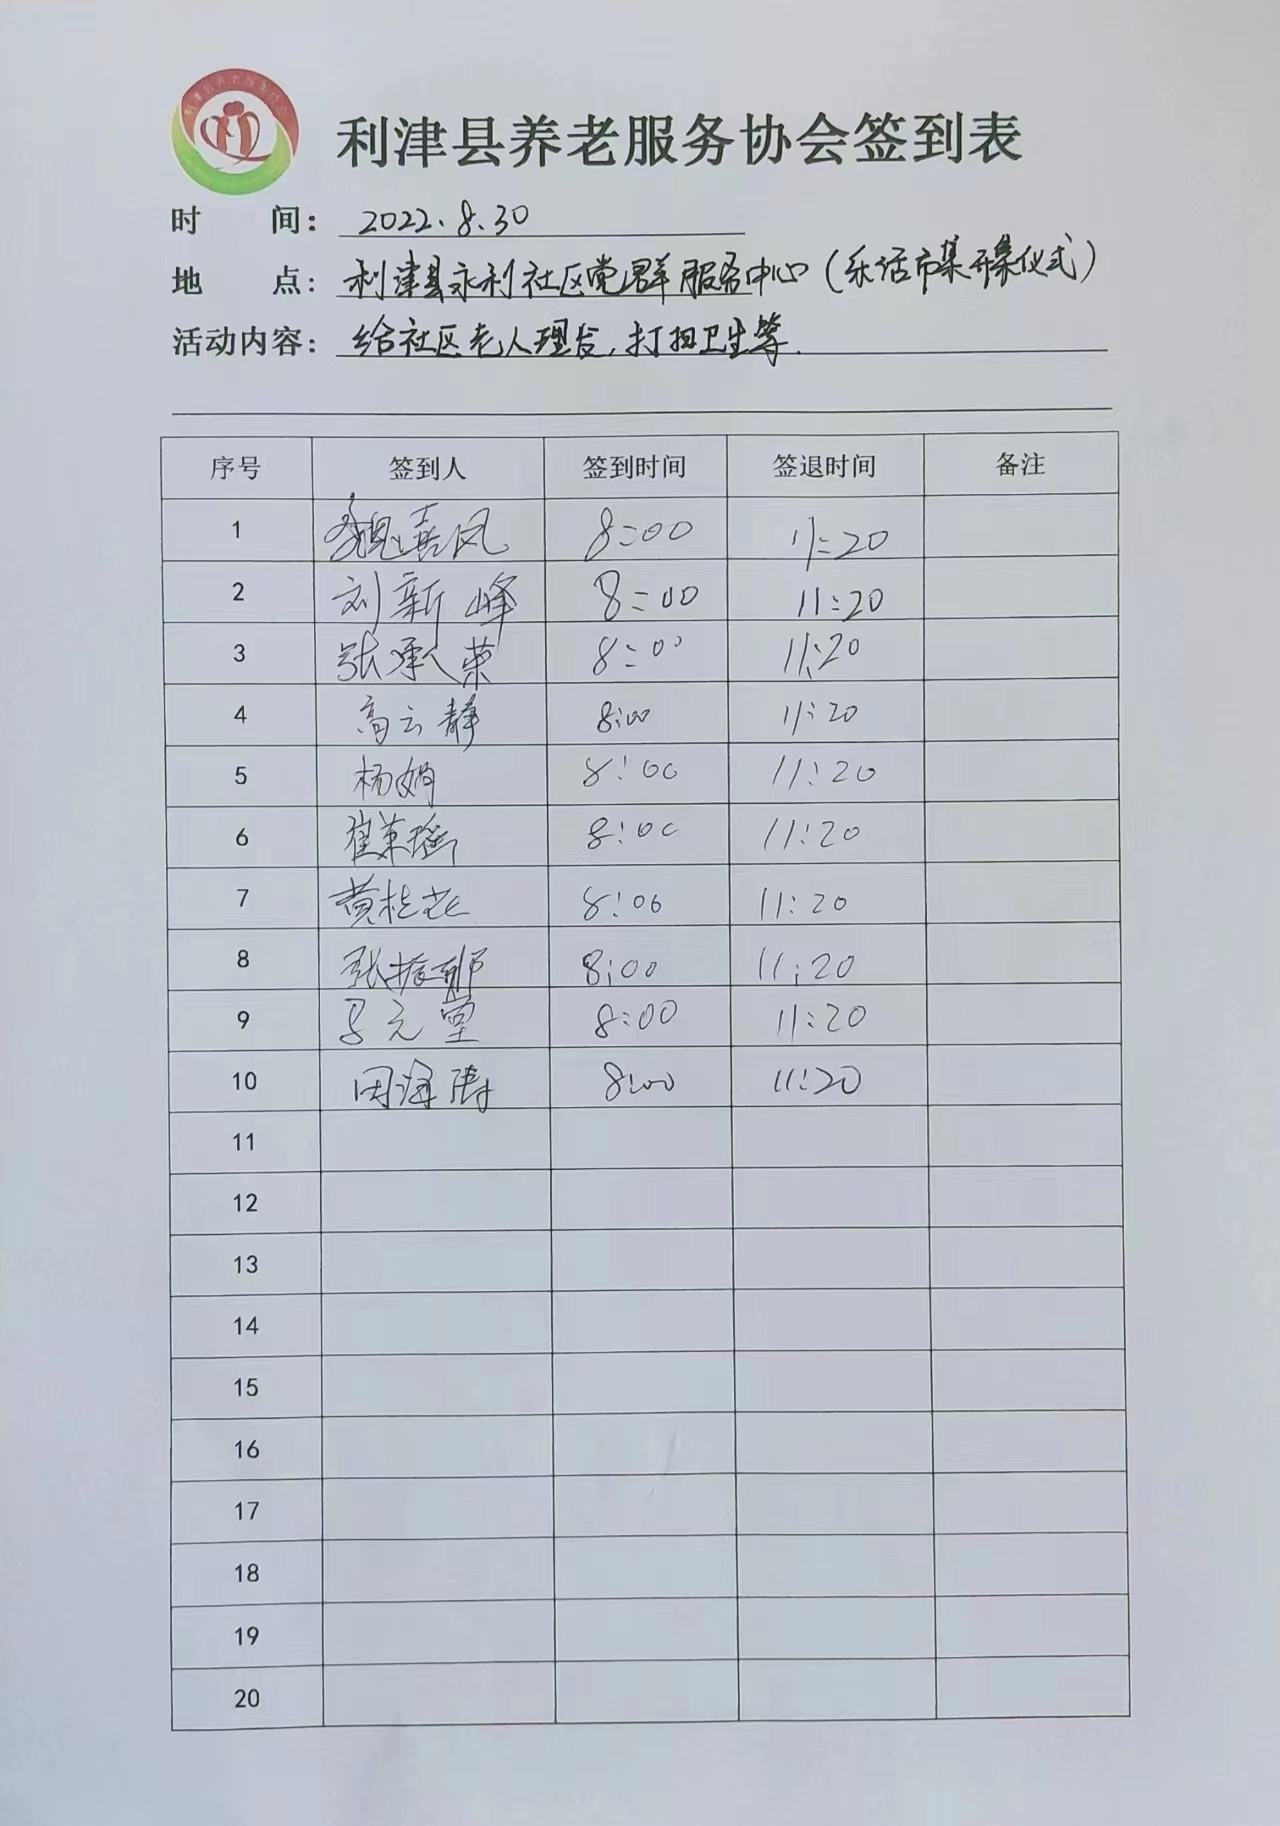 利津县养老服务协会
利津县养老服务协会签到表
时 间: 2022.8.30
地 点: 利津县永利社区党群服务中心(乐活市集开集仪式)
活动内容: 给社区老人理发,打扫卫生等.
序号 签到人 签到时间 签退时间 备注
1 魏嘉凤 8:00 11:20
2 刘新峰 8:00 11:20
3 张承荣 8:00 11:20
4 高云静 8:00 11:20
5 杨娟 8:00 11:20
6 崔苹瑶 8:00 11:20
7 黄桂花 8:00 11:20
8 张振 8:00 11:20
9 元堂 8:00 11:20
10 田海涛 8:00 11:20
11
12
13
14
15
16
17
18
19
20